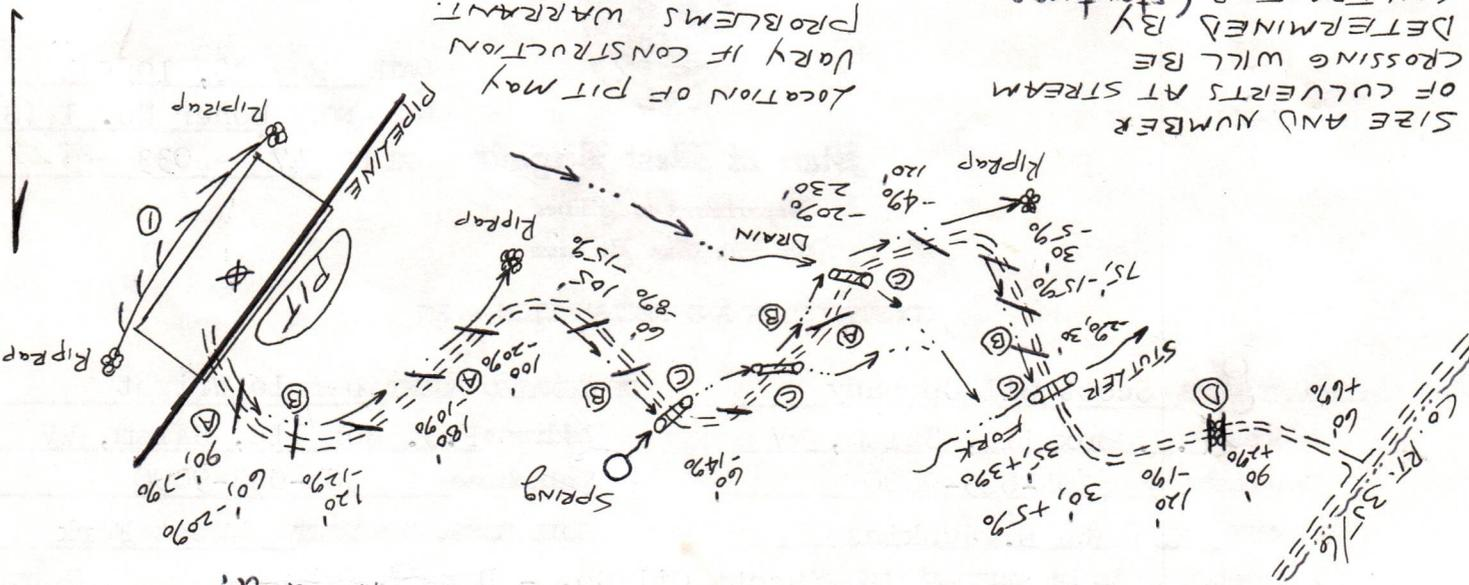 CO. RT.
60'
+6%
90'
+2%
D
120'
-1%
30'
+5%
35' +3%
STUTLER
FORK
C
B
75' -15%
30'
-5%
RIPRAP
120'
-4%
230'
-20%
C
A
B
DRAIN
C
60'
-14%
SPRING
C
B
60'
-8%
105'
-15%
RIPRAP
100'
-20%
A
180'
-10%
120'
-12%
B
60'
-20%
A
90'
-7%
PIT
PIPELINE
RIPRAP
1
RIPRAP
SIZE AND NUMBER
OF CULVERTS AT STREAM
CROSSING WILL BE
DETERMINED BY
LOCATION OF PIT MAY
VARY IF CONSTRUCTION
PROBLEMS WARRANT.